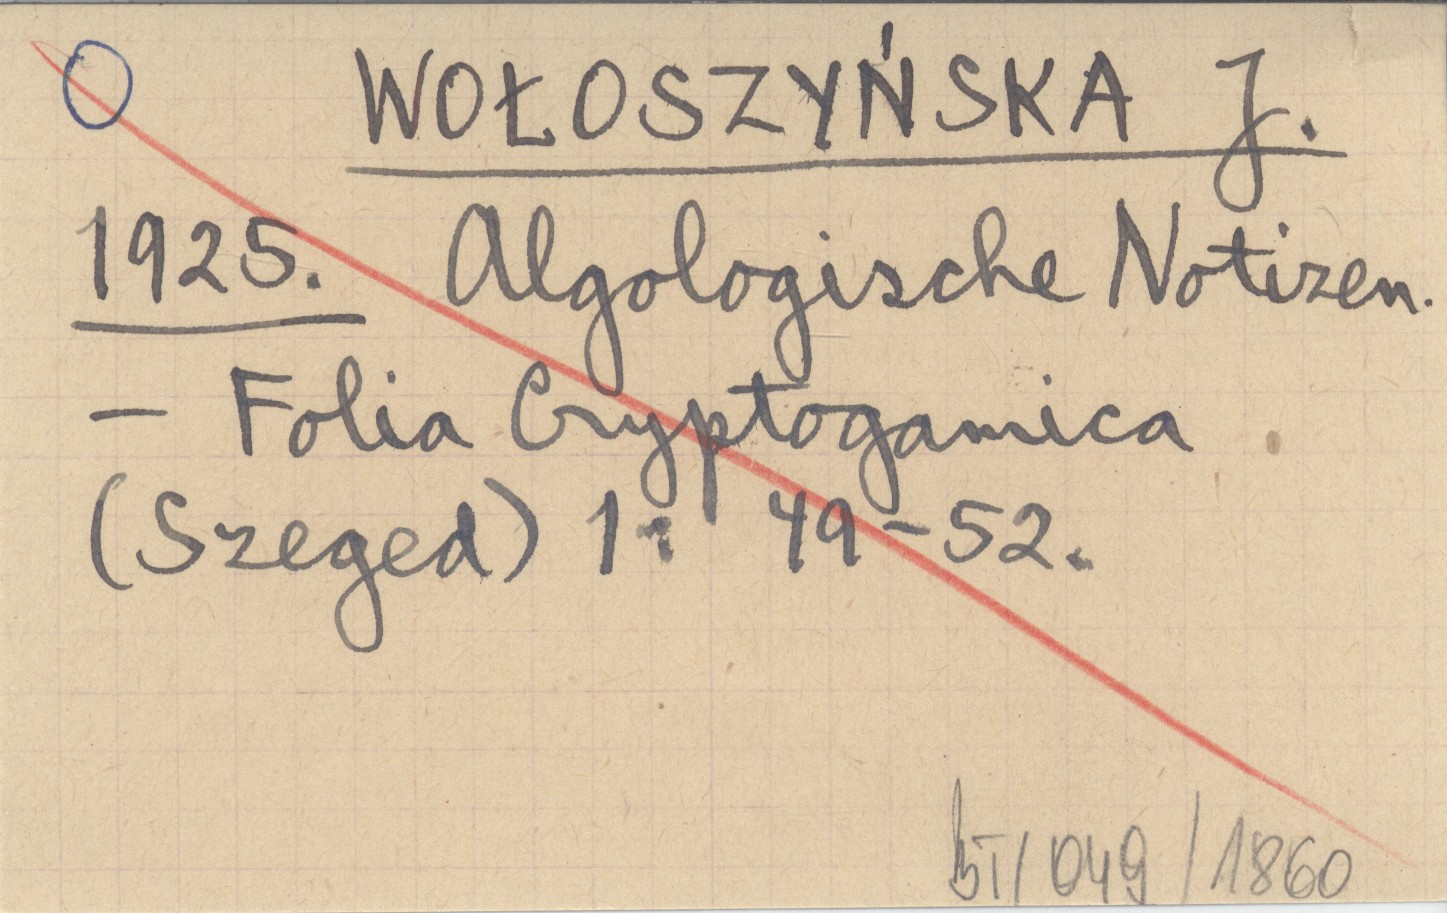 WOŁOSZYŃSKA J.
1925. Algologische Notizen.
— Folia Cryptogamica
(Szeged) 1: 49-52.
BT/049/1860